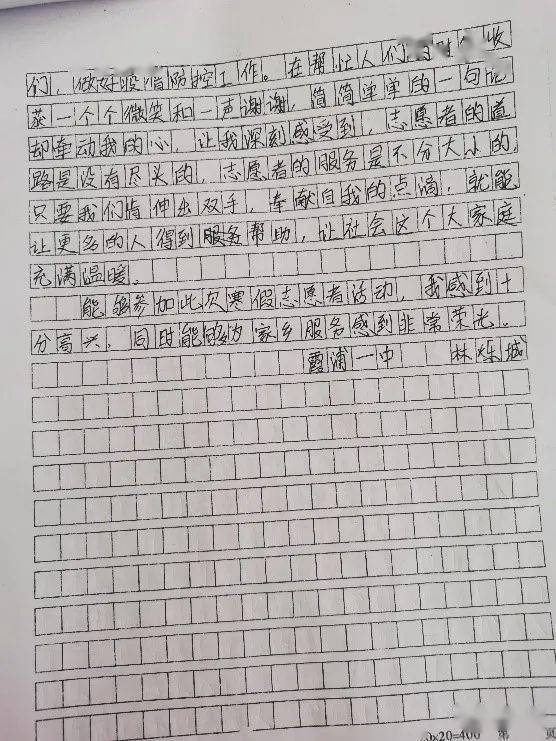 们，做好疫情防控工作。在帮忙人们收
获一个个微笑和一声谢谢，简简单单的一句
却牵动我的心，让我深刻感受到，志愿者的道
路是没有尽头的，志愿者的服务是不分大小的，
只要我们肯伸出双手，奉献自我的点滴，就能
让更多的人得到服务帮助，让社会这个大家庭
充满温暖。
能够参加此次寒假志愿者活动，我感到十
分高兴，同时能够为家乡服务感到非常荣光。
霞浦一中 林烁城
x20=400 第 页